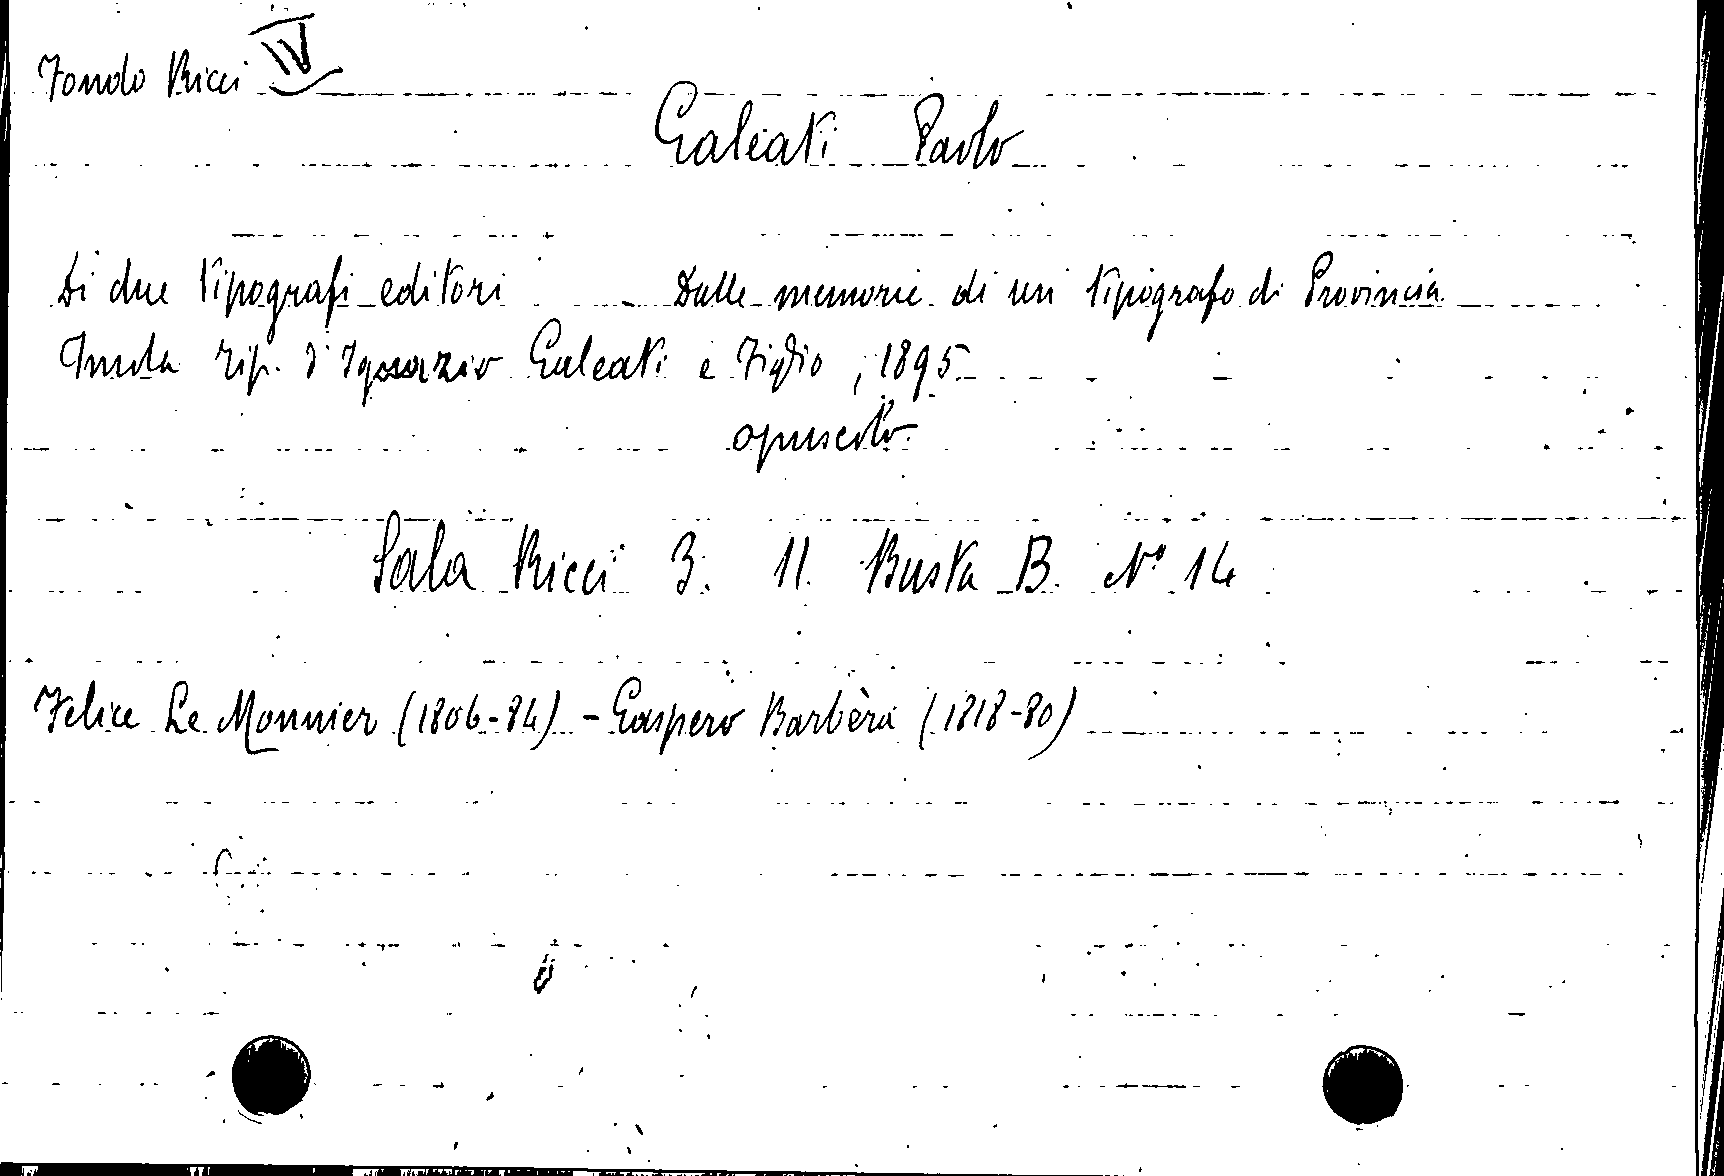 Fondo Ricci IV
Galeati Paolo
Di due tipografi editori Dalle memorie di un tipografo di Provincia
Imola Tip. d'Ignazio Galeati e Figlio, 1895
opuscolo.
Sala Ricci 3. 11. Busta B. N° 14
Felice Le Monnier (1806-84) - Gaspero Barbèra (1818-80)